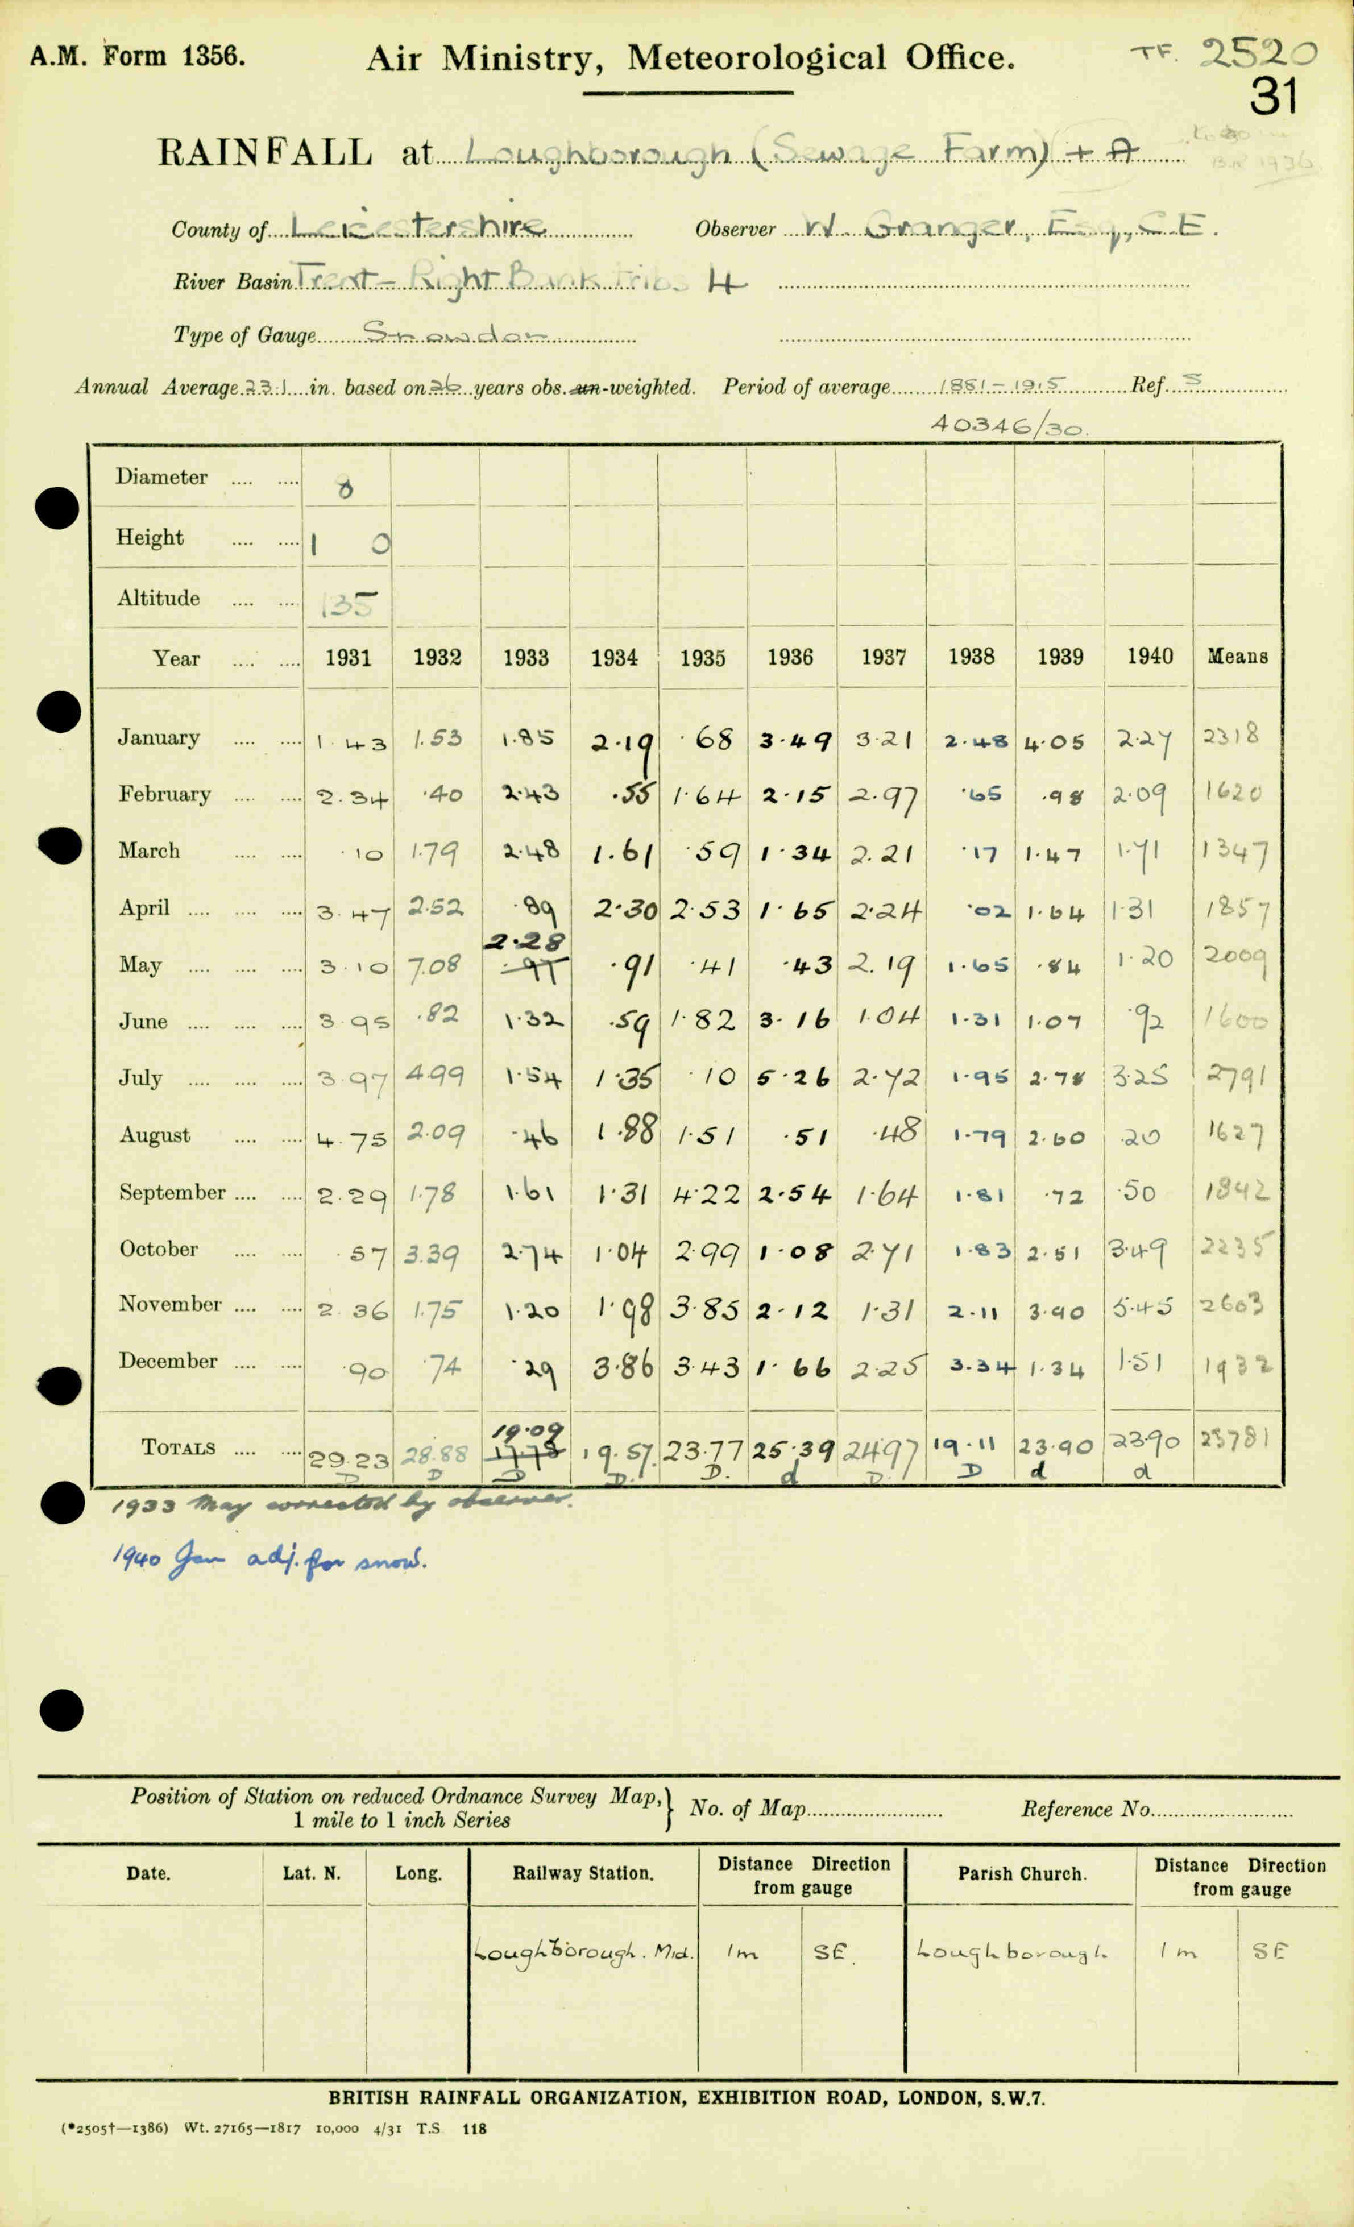 A.M. Form 1356. Air Ministry, Meteorological Office. TF. 2520
31
RAINFALL at Loughborough (Sewage Farm) + A
BR 1936
County of Leicestershire Observer W. Granger, Esq., C.E.
River Basin Trent - Right Bank Tribs 4
Type of Gauge Snowdon
Annual Average 23.1 in. based on 26 years obs. un-weighted. Period of average 1881-1915 Ref. S
40346/30.
Diameter .... .... 8
Height .... .... 1 0
Altitude .... .... 135
Year .... .... 1931 1932 1933 1934 1935 1936 1937 1938 1939 1940 Means
January .... .... 1.43 1.53 1.85 2.19 .68 3.49 3.21 2.48 4.05 2.27 2318
February .... .... 2.34 .40 2.43 .55 1.64 2.15 2.97 .65 .98 2.09 1620
March .... .... .10 1.79 2.48 1.61 .59 1.34 2.21 .17 1.47 1.71 1347
April .... .... .... 3.47 2.52 .89 2.30 2.53 1.65 2.24 .02 1.64 1.31 1857
2.28
May .... .... .... 3.10 7.08 .97 .91 .41 .43 2.19 1.65 .84 1.20 2009
June .... .... .... 3.95 .82 1.32 .59 1.82 3.16 1.04 1.31 1.07 .92 1600
July .... .... .... 3.97 4.99 1.54 1.35 .10 5.26 2.72 1.95 2.78 3.25 2791
August .... .... 4.75 2.09 .46 1.88 1.51 .51 .48 1.79 2.60 .20 1627
September .... .... 2.29 1.78 1.61 1.31 4.22 2.54 1.64 1.81 .72 .50 1842
October .... .... .57 3.39 2.74 1.04 2.99 1.08 2.71 1.83 2.51 3.49 2235
November .... .... 2.36 1.75 1.20 1.98 3.85 2.12 1.31 2.11 3.90 5.45 2603
December .... .... .90 .74 .29 3.86 3.43 1.66 2.25 3.34 1.34 1.51 1932
19.09
TOTALS .... .... 29.23 28.88 17.78 19.57 23.77 25.39 24.97 19.11 23.90 23.90 23781
D D D D. D. d D. D d d
1933 May corrected by observer.
1940 Jan adj. for snow.
Position of Station on reduced Ordnance Survey Map,} No. of Map Reference No.
1 mile to 1 inch Series
Date. Lat. N. Long. Railway Station. Distance Direction from gauge Parish Church. Distance Direction from gauge
Loughborough. Mid. 1m SE. Loughborough 1m SE
BRITISH RAINFALL ORGANIZATION, EXHIBITION ROAD, LONDON, S.W.7.
(*2505†—1386) Wt. 27165—1817 10,000 4/31 T.S. 118